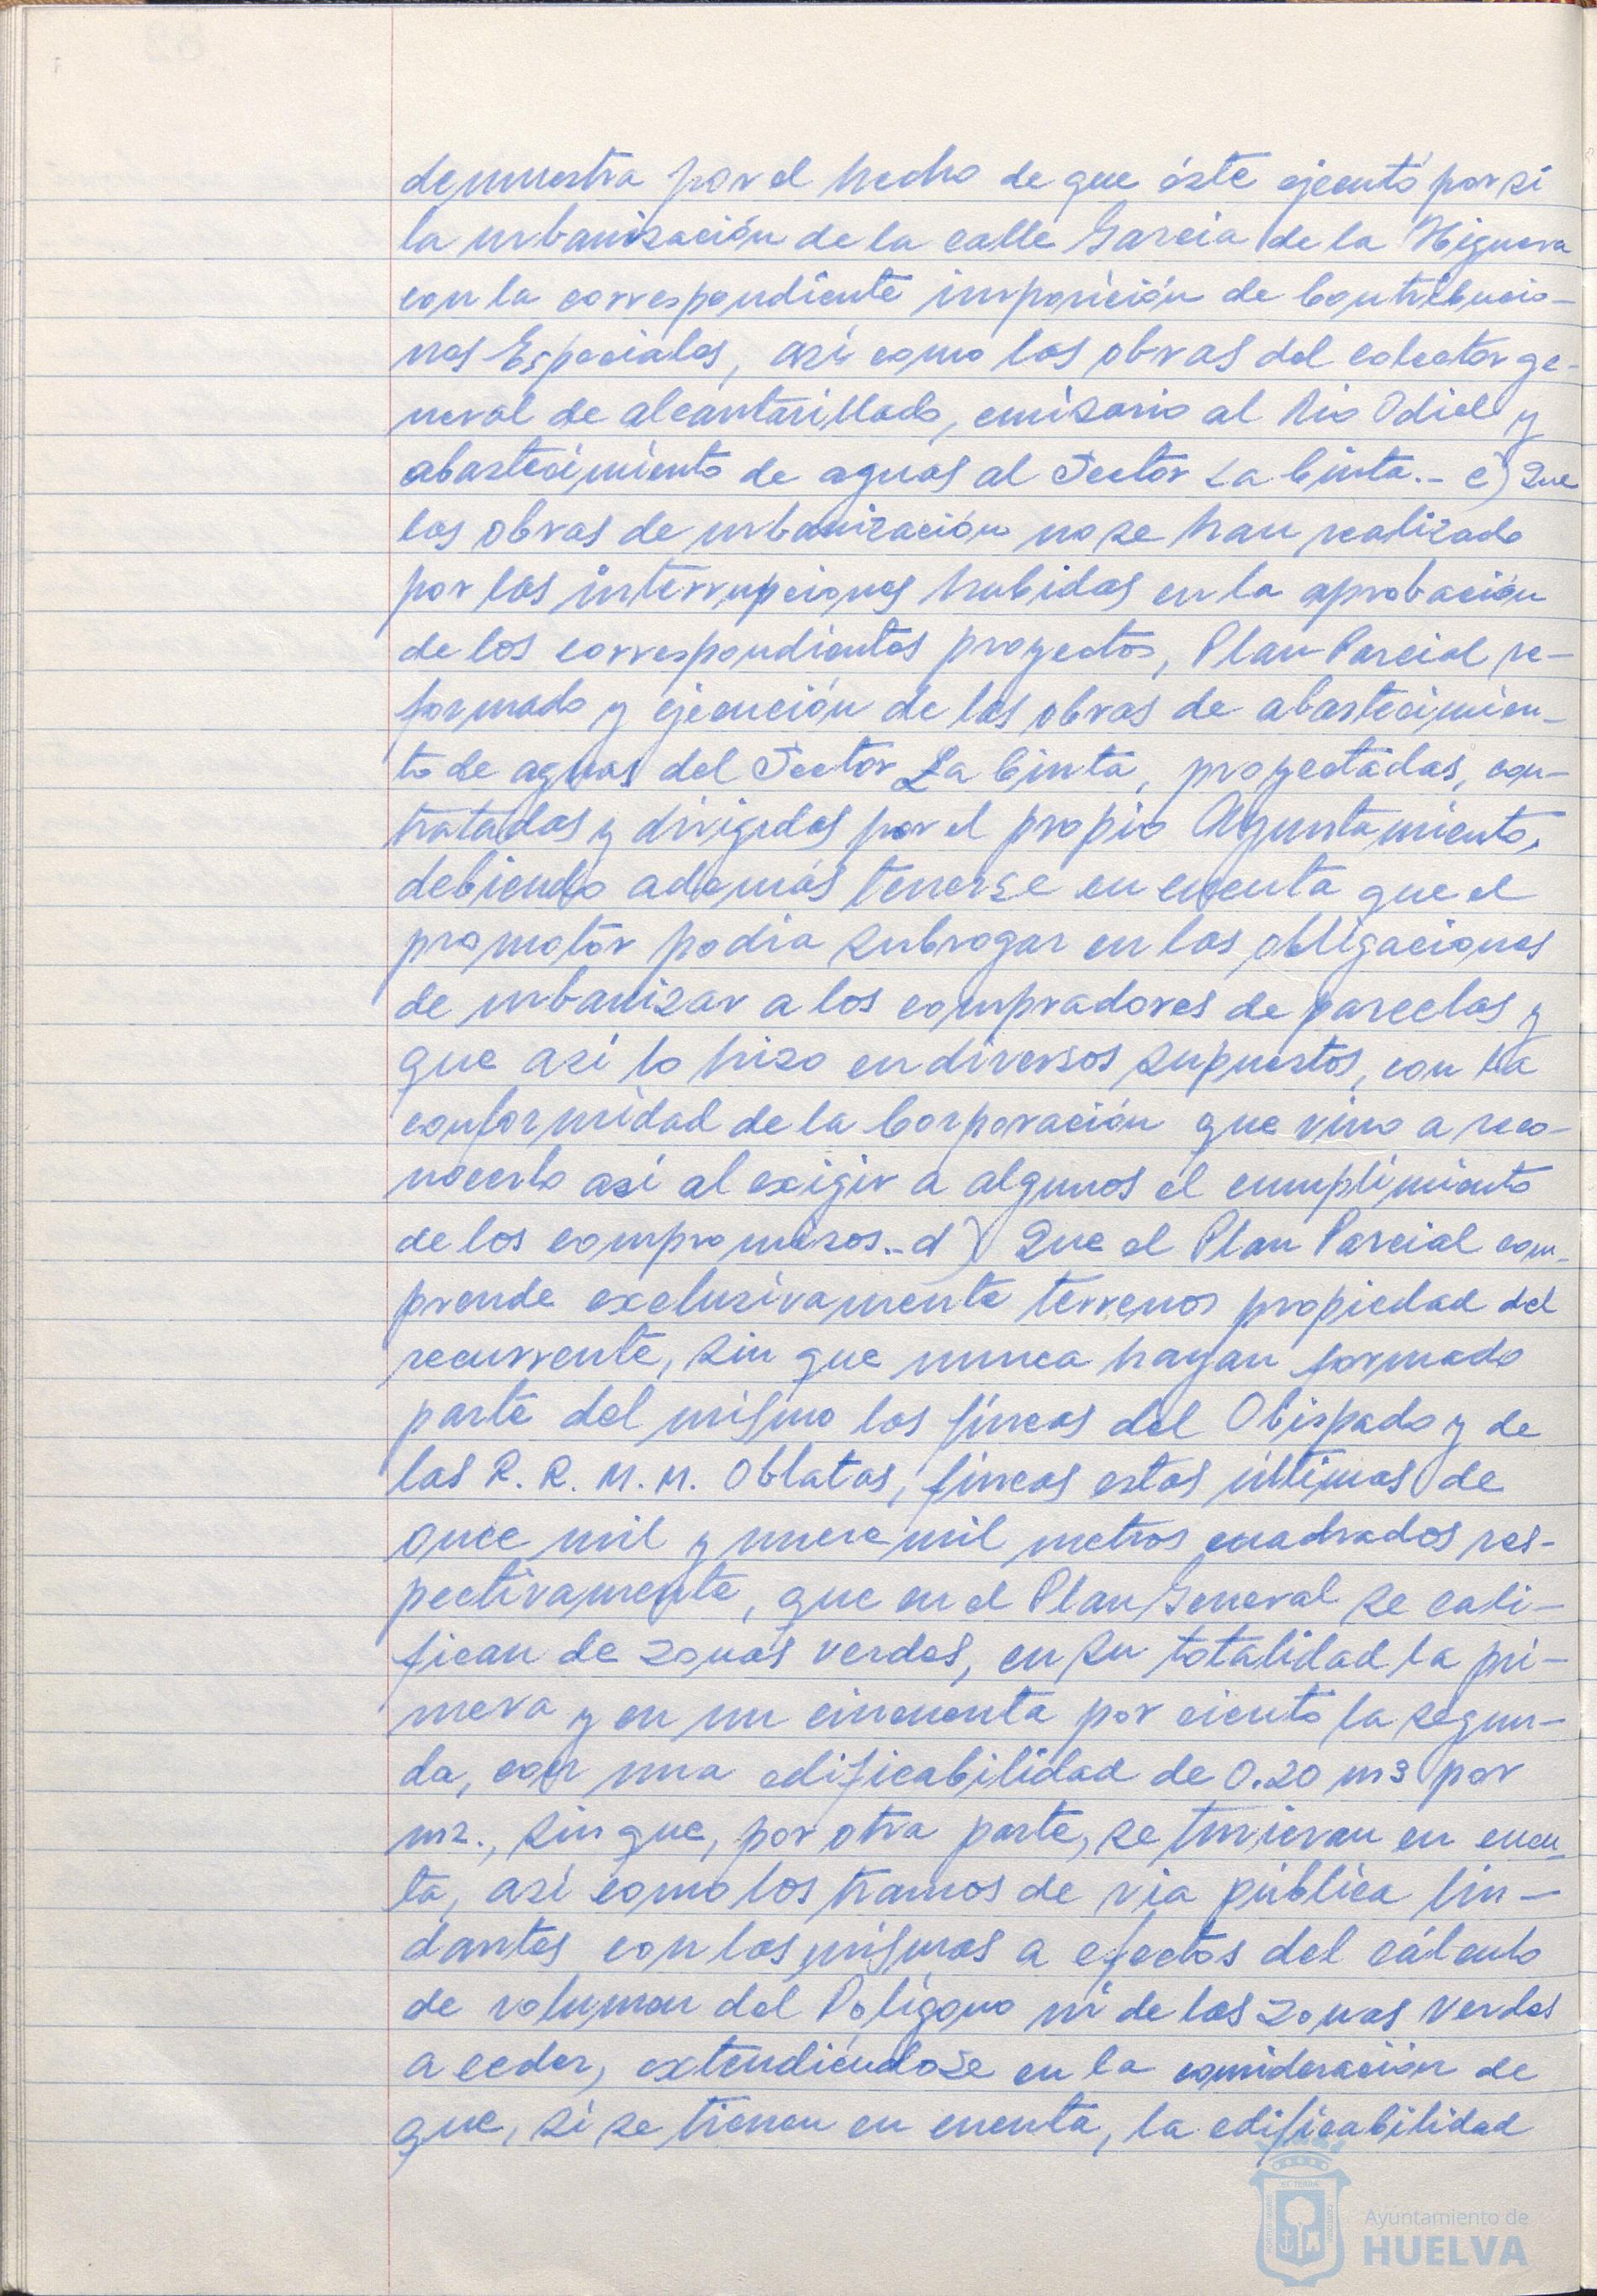 demuestra por el hecho de que éste ejecutó por sí
la urbanización de la calle Garcia de la Higuera
con la correspondiente imposición de Contribucio-
nes Especiales, así como las obras del colector ge-
neral de alcantarillado, emisario al Rio Odiel y
abastecimiento de aguas al Sector La Cinta.- c) Que
las obras de urbanización no se han realizado
por las interrupciones habidas en la aprobación
de los correspondientes proyectos, Plan Parcial re-
formado y ejecución de las obras de abastecimien-
to de aguas del Sector La Cinta, proyectadas, con-
tratadas y dirigidas por el propio Ayuntamiento,
debiendo además tenerse en cuenta que el
promotor podia subrogar en las obligaciones
de urbanizar a los compradores de parcelas y
que así lo hizo en diversos supuestos, con la
conformidad de la Corporación que vino a reco-
nocerlo así al exigir a algunos el cumplimiento
de los compromisos.- d) Que el Plan Parcial com-
prende exclusivamente terrenos propiedad del
recurrente, sin que nunca hayan formado
parte del mismo las fincas del Obispado y de
las R. R. M. M. Oblatas, fincas estas últimas de
once mil y nueve mil metros cuadrados res-
pectivamente, que en el Plan General se cali-
fican de zonas verdes, en su totalidad la pri-
mera y en un cincuenta por ciento la segun-
da, con una edificabilidad de 0.20 m3 por
m2., sin que, por otra parte, se tuvieran en cuen-
ta, así como los tramos de via pública lin-
dantes con las mismas a efectos del cálculo
de volumen del Poligono ni de las zonas verdes
a ceder, extendiéndose en la consideración de
que, si se tienen en cuenta, la edificabilidad
Ayuntamiento de
HUELVA